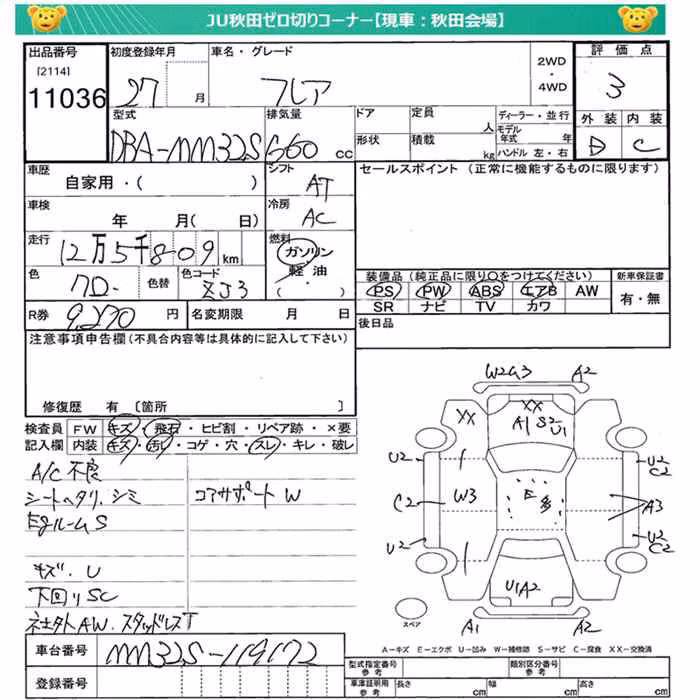 JU秋田ゼロ切りコーナー【現車：秋田会場】
出品番号
[2114]
11036
初度登録年月
27 月
車名・グレード
フレア
2WD
・
4WD
評価点
3
外装 内装
D C
型式
DBA-MM32S
排気量
660 cc
ドア
形状
定員
人
積載
kg
ディーラー・並行
モデル年式 年
ハンドル 左・右
車歴
自家用・( )
シフト
AT
車検
年 月( 日)
冷房
AC
走行
12万5千809 km
燃料
ガソリン
軽油
( )
色
クロ-
色替
色コード
ZJ3
R券 9,270 円
名変期限 月 日
セールスポイント (正常に機能するものに限ります)
装備品(純正品に限り○をつけてください)
新車保証書
PS PW ABS エアB AW
SR ナビ TV カワ
有・無
後日品
注意事項申告欄(不具合内容等は具体的に記入して下さい)
修復歴 有 〔箇所 〕
検査員記入欄
FW キズ・飛石・ヒビ割・リペア跡・×要
内装 キズ・汚レ・コゲ・穴・スレ・キレ・破レ
A/C 不良
シートヘタリ、シミ コアサポートW
EgルームS
キズ.U
下回りSC
ネ土外AW.スタッドレスT
車台番号 MM32S-119172
登録番号
W2U3 A2
XX XX
A1 S2 U1
U2 U2 C2
C2 W3 E多 A3
U2 U2 C2
U1A2
スペア
A1 A2
A-キズ E-エクボ U-凹み W-補修跡 S-サビ C-腐食 XX-交換済
型式指定番号 類別区分番号
車庫証明用参考 長さ cm 幅 cm 高さ cm